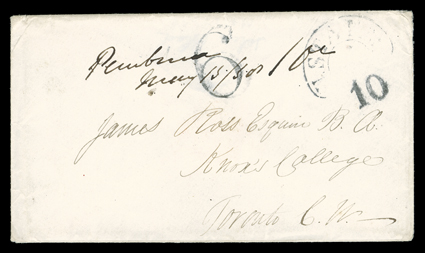 Pembina
May 15/58
10c
6
10
James Ross Esquire B. A.
Knox's College
Toronto C. W.